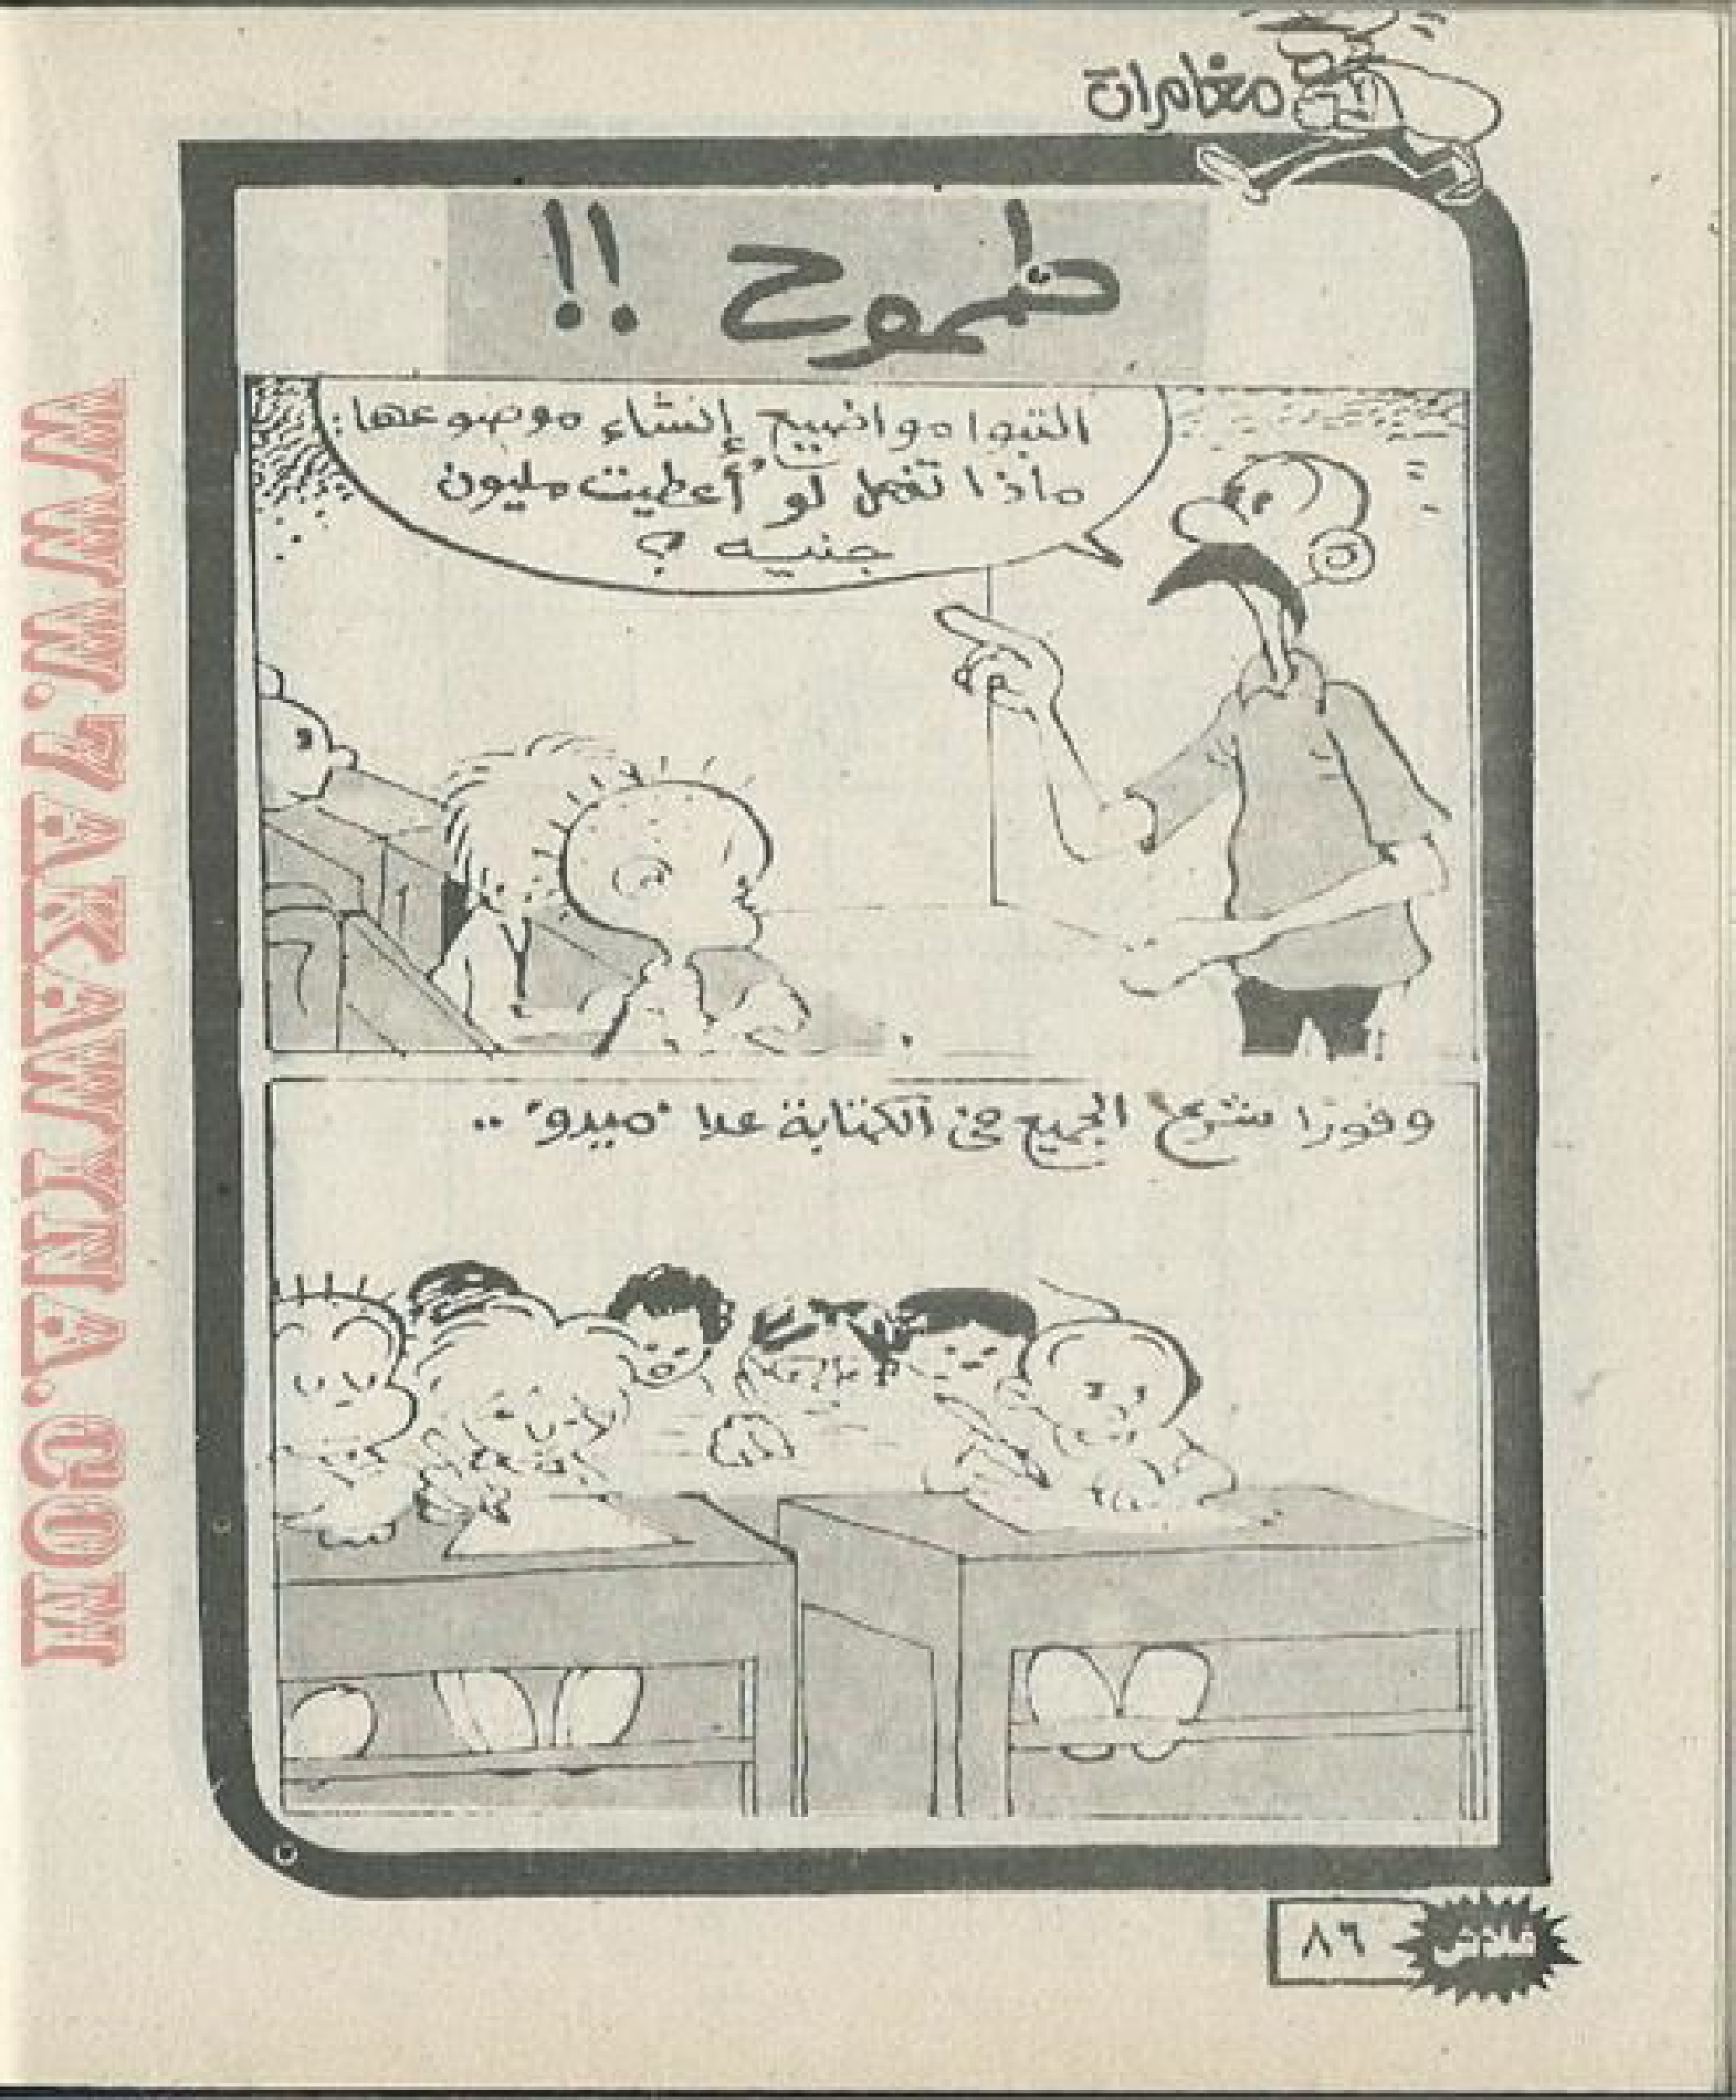 مغامرات
طموح !!
اكتبوا مواضيع إنشاء موضوعها:
ماذا تفعل لو أُعطيت مليون
جنيه ؟
وفورًا شرع الجميع في الكتابة عدا "ميدو" ..
٨٦
فلاش
WWW.7AKAWITNA.COM